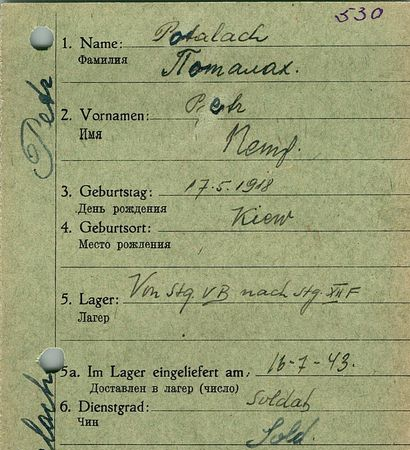 530
1. Name: Potalach
Фамилия Поталах.
2. Vornamen: Petr
Имя Петр.
3. Geburtstag: 17.5.1918
День рождения
4. Geburtsort: Kiew
Место рождения
5. Lager: Von Stg. VB nach Stg. XII F
Лагерь
5a. Im Lager eingeliefert am, 16-7-43.
Доставлен в лагерь (число)
6. Dienstgrad: Soldat
Чин Sold.
Petr